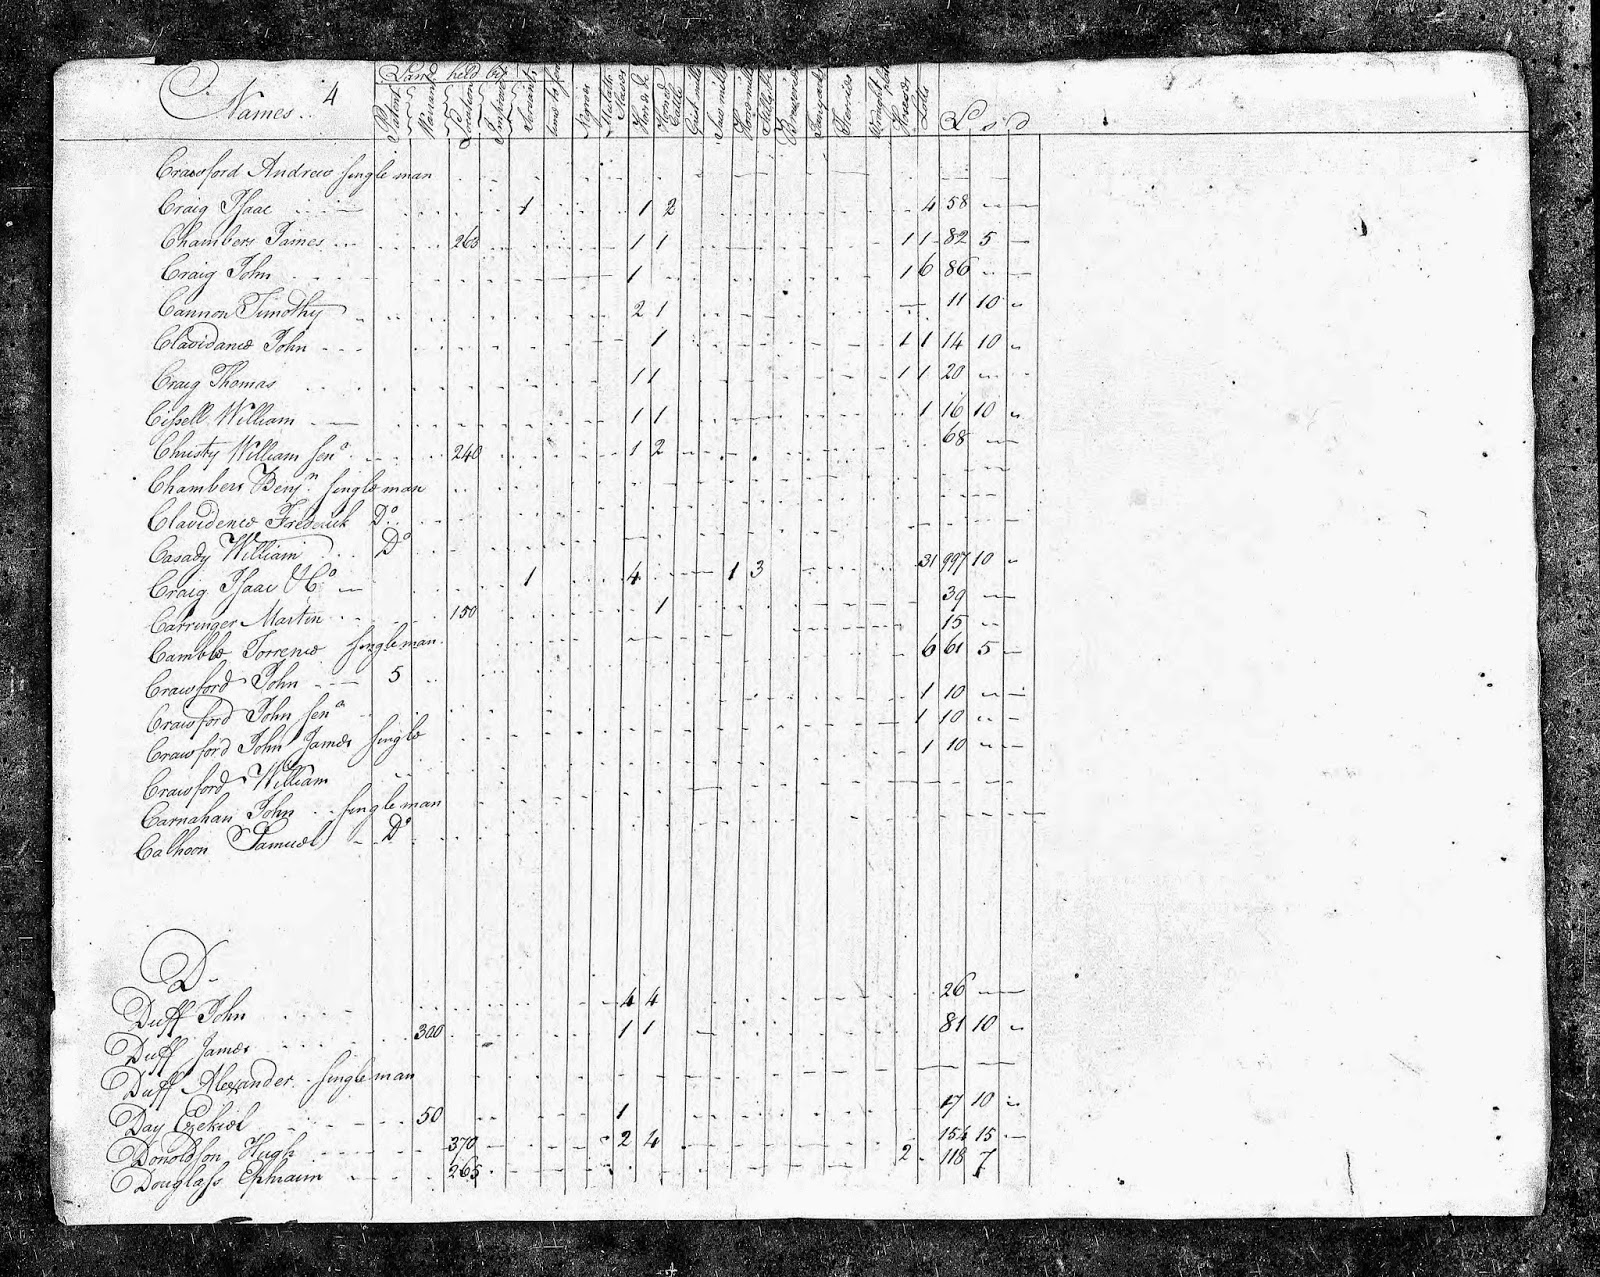 Names.. 4 Land held by Patent Warrant Location Improvement Servants Negroes Mulatto Slaves Horned Cattle Grist mills Saw mills Stills Breweries Tanyards Ferries Houses Lotts L s d
Crawford Andrew Single man
Craig Isaac 1 1 2 4 58
Chambers James 265 1 1 1 1 82 5
Craig John 1 1 6 86
Cannon Timothy 2 1 11 10
Clavidance John 1 1 1 14 10
Craig Thomas 1 1 1 1 20
Cissell William 1 1 1 16 10
Christy William Senr 240 1 2 68
Chambers Benjn. Single man
Clavidence Frederick Do
Casady William Do
Craig Isaac & Co 1 4 1 3 31 997 10
Carringer Martin 150 1 39
Camble Torrence Single man 15
Crawford John 5 6 61 5
Crawford John Senr 1 10
Crawford John James Single 1 10
Crawford William 1 10
Carnahan John Single man
Calhoon Samuel Do
D
Duff John 4 4 26
Duff James 300 1 1 81 10
Duff Alexander Single man
Day Ezekiel 50 1 17 10
Donoldson Hugh 370 2 4 154 15
Douglass Ephraim 265 2 118 7